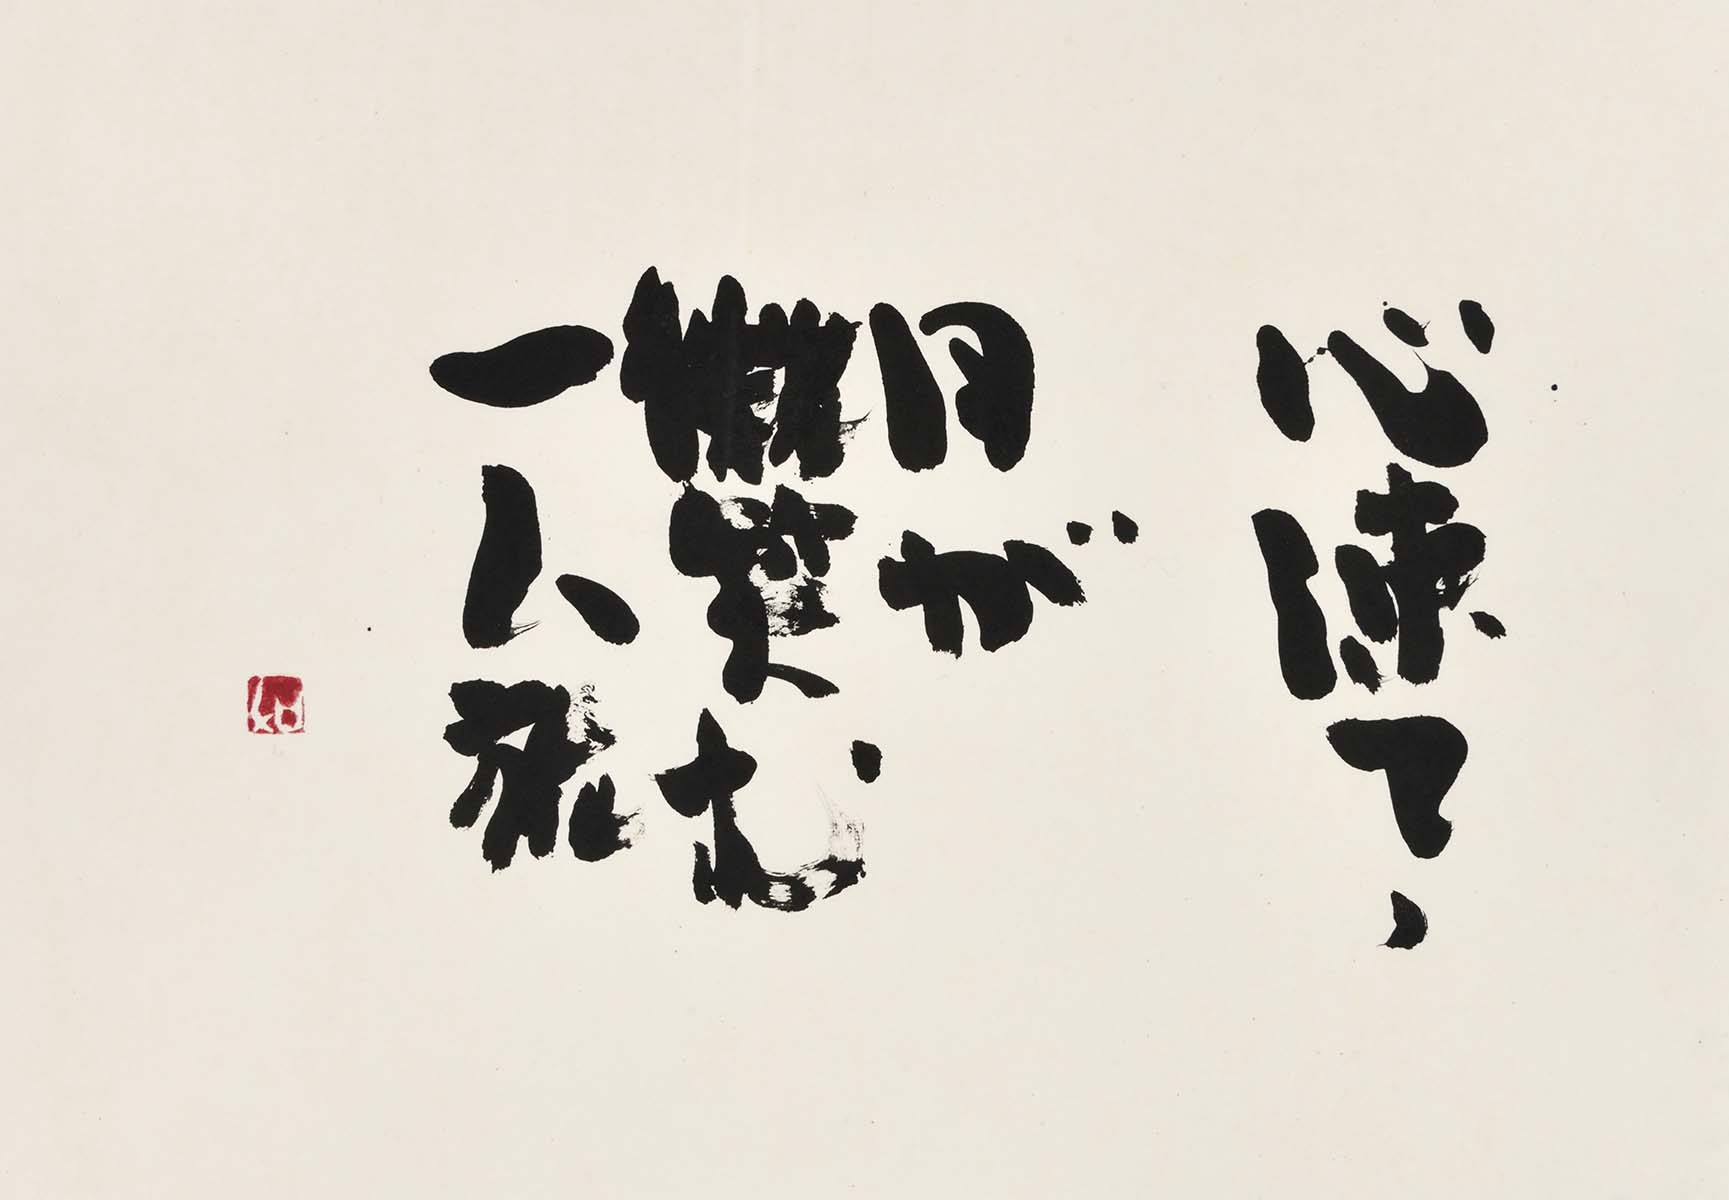 心凍て、
月が
微笑む
一人旅